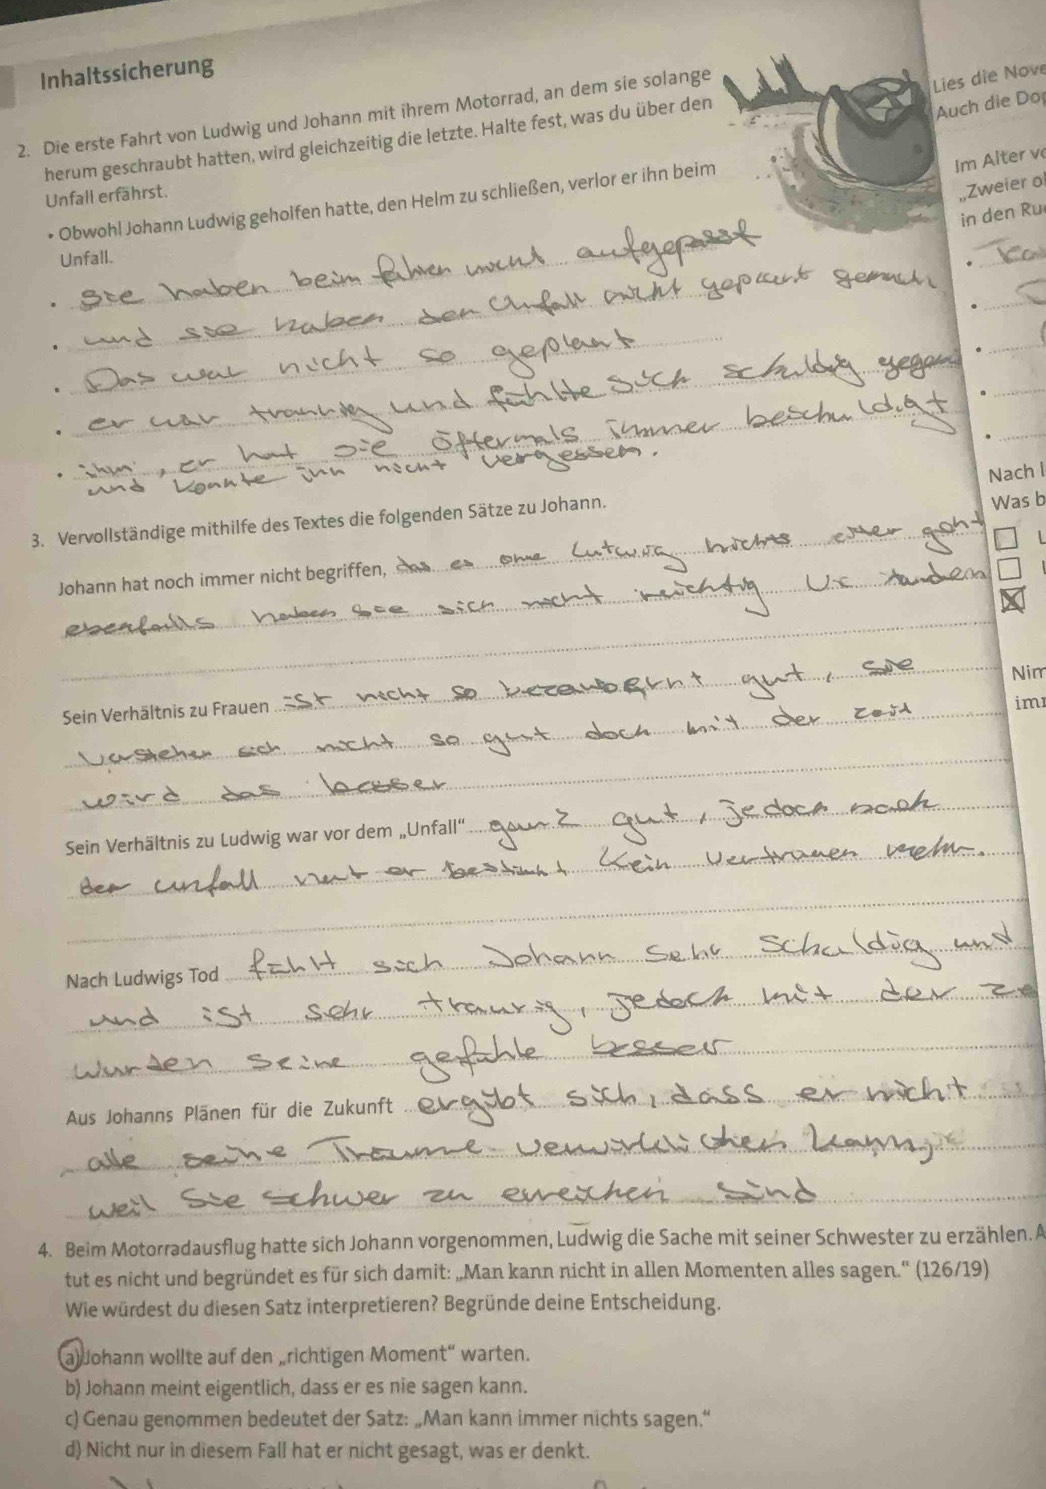 Inhaltssicherung
2. Die erste Fahrt von Ludwig und Johann mit ihrem Motorrad, an dem sie solange
herum geschraubt hatten, wird gleichzeitig die letzte. Halte fest, was du über den
Unfall erfährst.
• Obwohl Johann Ludwig geholfen hatte, den Helm zu schließen, verlor er ihn beim
Unfall.
• Sie haben beim fahren nicht aufgepasst
• und sie haben den Unfall nicht geplant
• Das war nicht so geplant
• er war traurig und fühlte sich schuldig gegen
• ihm, er hat sie öftermals immer beschuldigt
und konnte inn nicht vergessen.
3. Vervollständige mithilfe des Textes die folgenden Sätze zu Johann.
Johann hat noch immer nicht begriffen, das es ohne
ebenfalls haben sie sich nicht
Sein Verhältnis zu Frauen ist nicht so gut, sie
verstehen sich nicht so gut doch mit der zeit
wird das besser
Sein Verhältnis zu Ludwig war vor dem „Unfall" ganz gut, jedoch nach
der unfall er bestimmt kein vertrauen mehr.
Nach Ludwigs Tod fühlt sich Johann sehr schuldig und
und ist sehr traurig, jedoch mit der ze
wurden seine gefühle besser
Aus Johanns Plänen für die Zukunft ergibt sich, dass er nicht
alle seine Träume kann,
weil Sie schwer zu erreichen sind
4. Beim Motorradausflug hatte sich Johann vorgenommen, Ludwig die Sache mit seiner Schwester zu erzählen. A
tut es nicht und begründet es für sich damit: „Man kann nicht in allen Momenten alles sagen." (126/19)
Wie würdest du diesen Satz interpretieren? Begründe deine Entscheidung.
a) Johann wollte auf den „richtigen Moment" warten.
b) Johann meint eigentlich, dass er es nie sagen kann.
c) Genau genommen bedeutet der Satz: „Man kann immer nichts sagen."
d) Nicht nur in diesem Fall hat er nicht gesagt, was er denkt.
Lies die Nove
Auch die Dop
Im Alter vo
„Zweier o
in den Ru
Nach l
Was b
Nim
imm